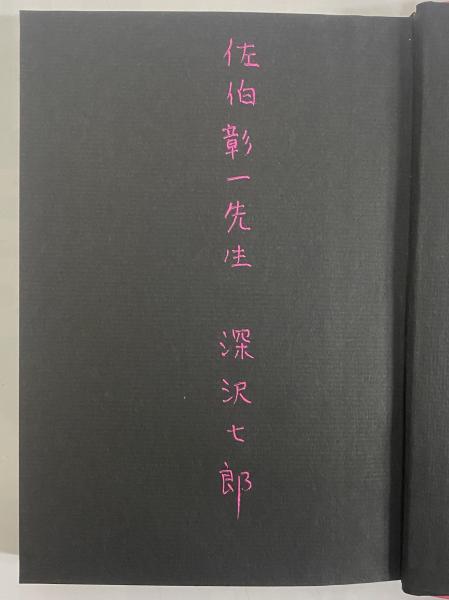 佐伯彰一先生 深沢七郎